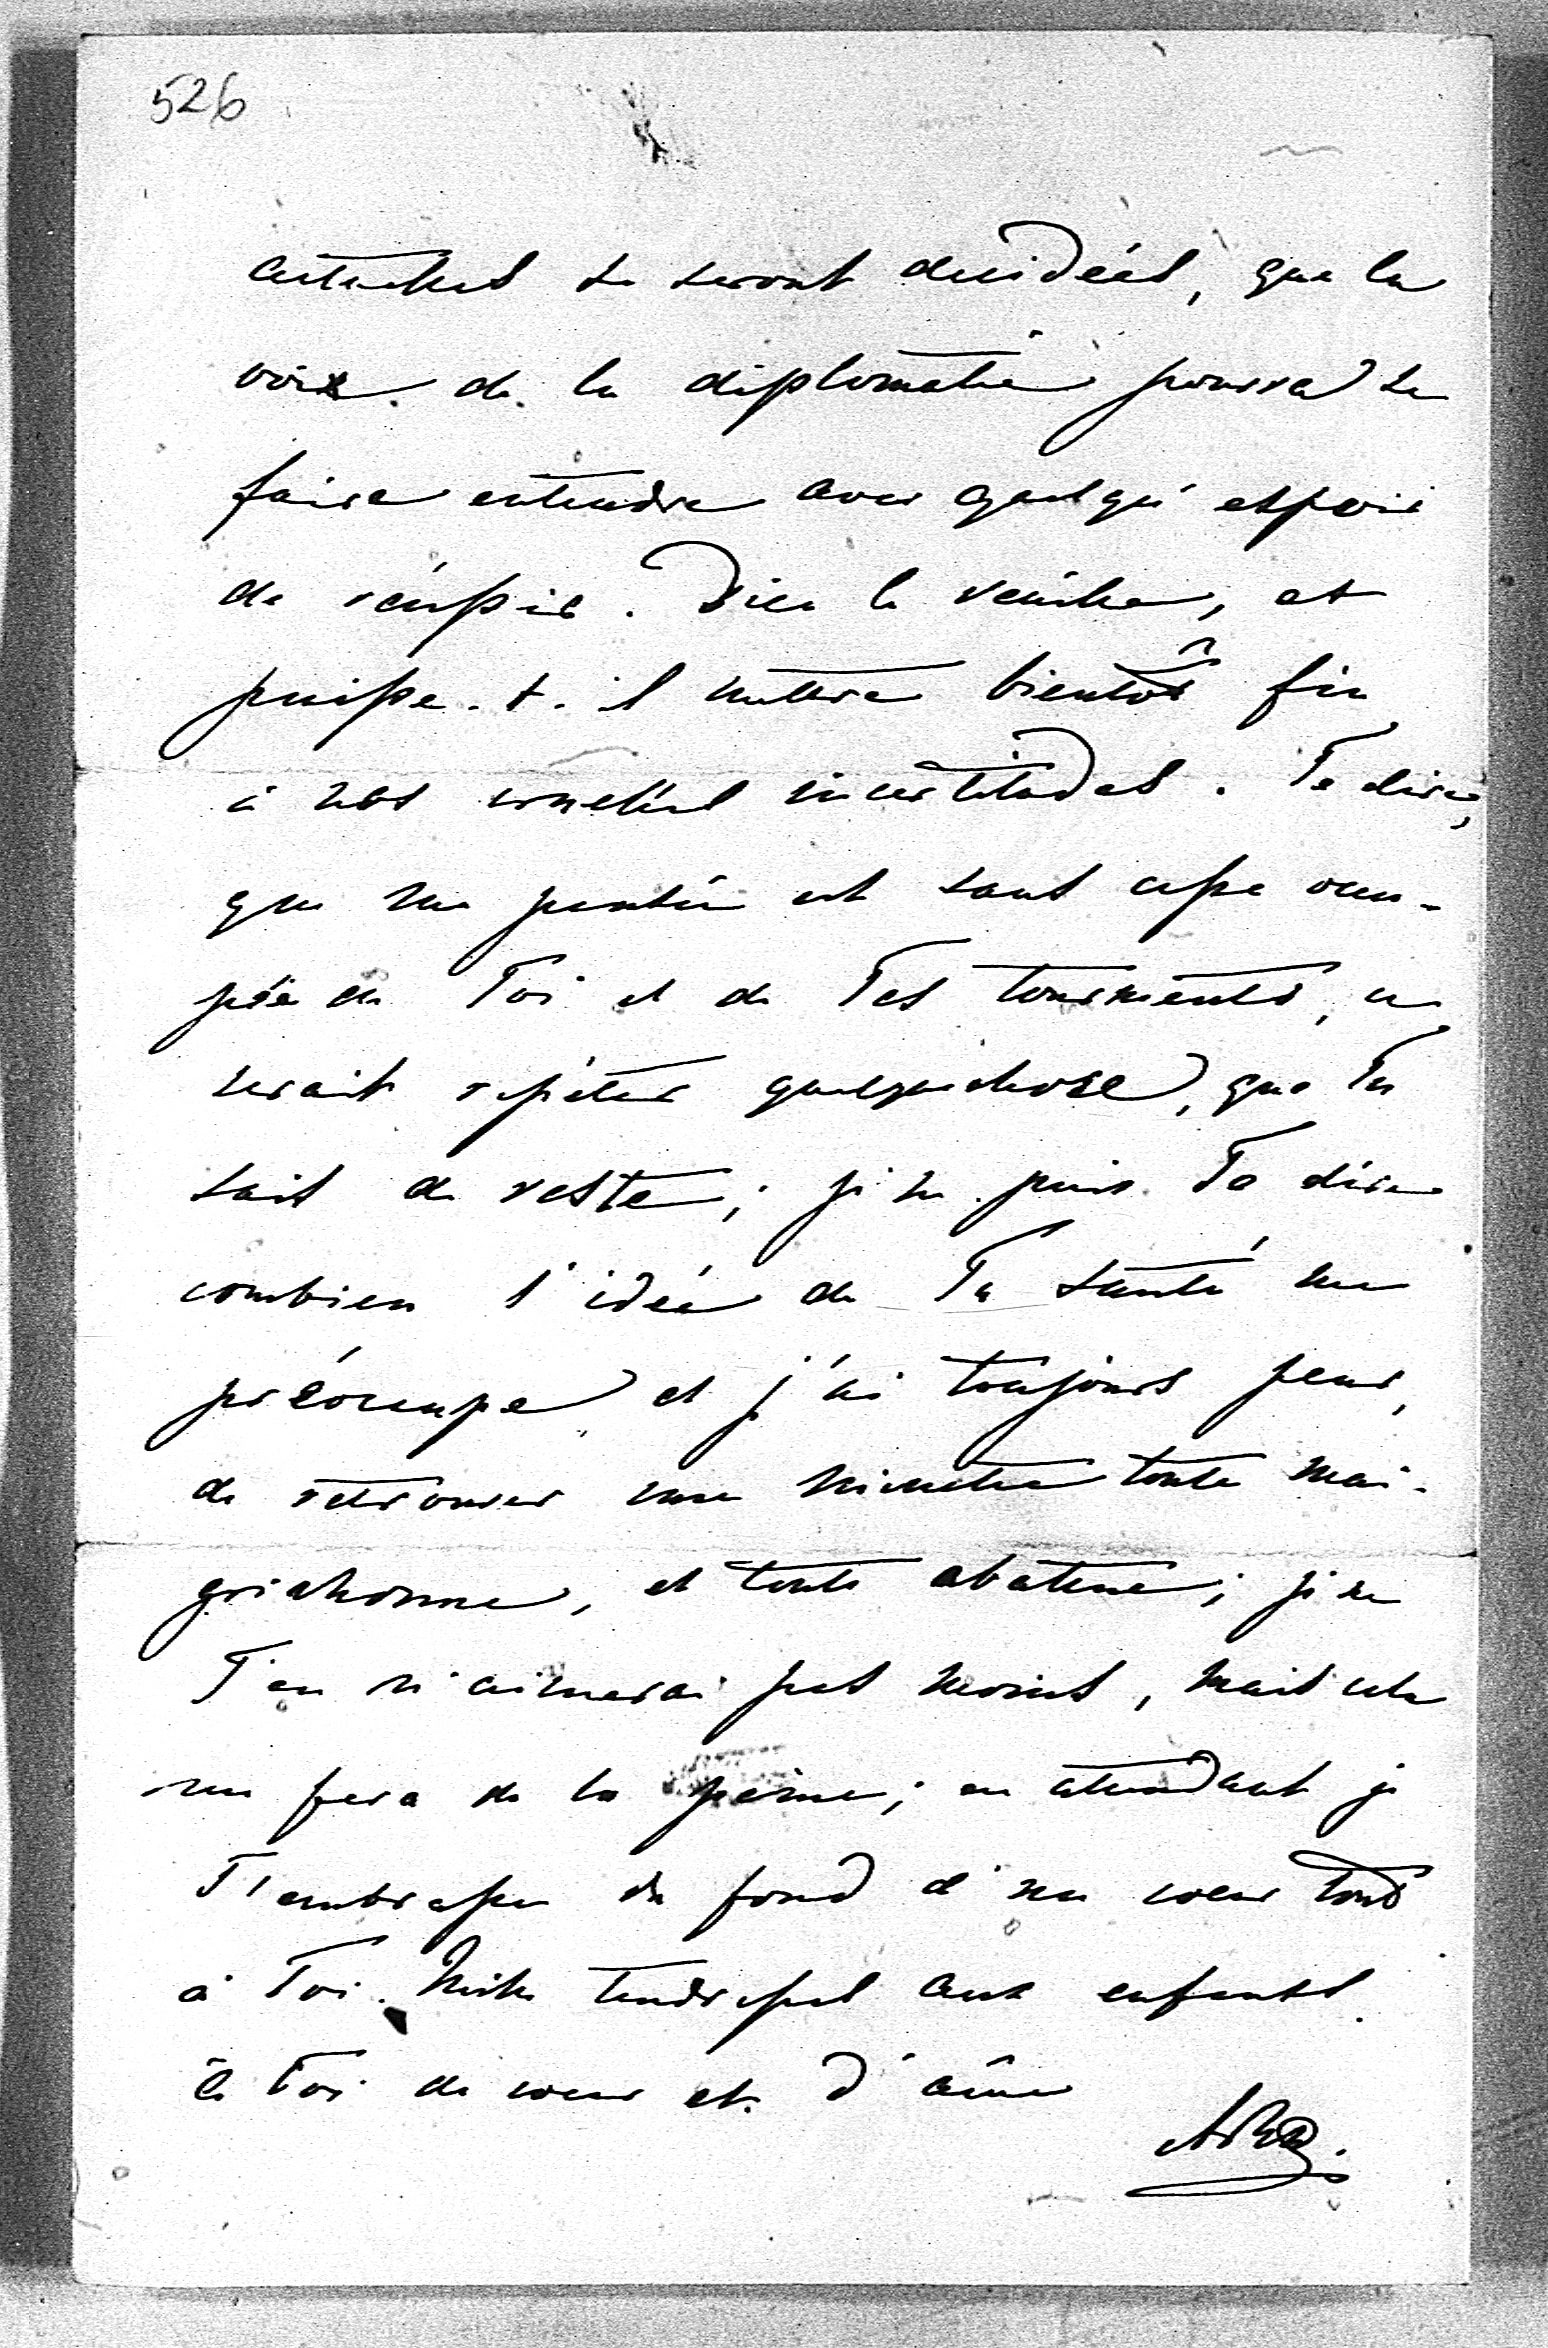 526
actuelles se seront decidées, que la
voix de la diplomatie pourra se
faire entendre avec quelqu' espoir
de réussir. Dieu le veuille, et
puisse-t-il mettre bientôt fin
à nos cruelles incertitudes. Te dire,
que ma pensée est sans cesse occu-
pée de Toi et de Tes tourments, ce
serait répéter quelquechose, que Tu
sais de reste; je ne puis Te dire
combien l'idée de Ta santé me
préoccupe et j'ai toujours peur,
de retrouver une toute mai-
grichonne, et toute abatue; je ne
T'en n'aimerai pas moins, mais cela
me fera de la peine; en attendant je
T'embrasse du fond d'un coeur tout
à Toi. Mille tendresses aux enfants.
à Toi de coeur et d'âme